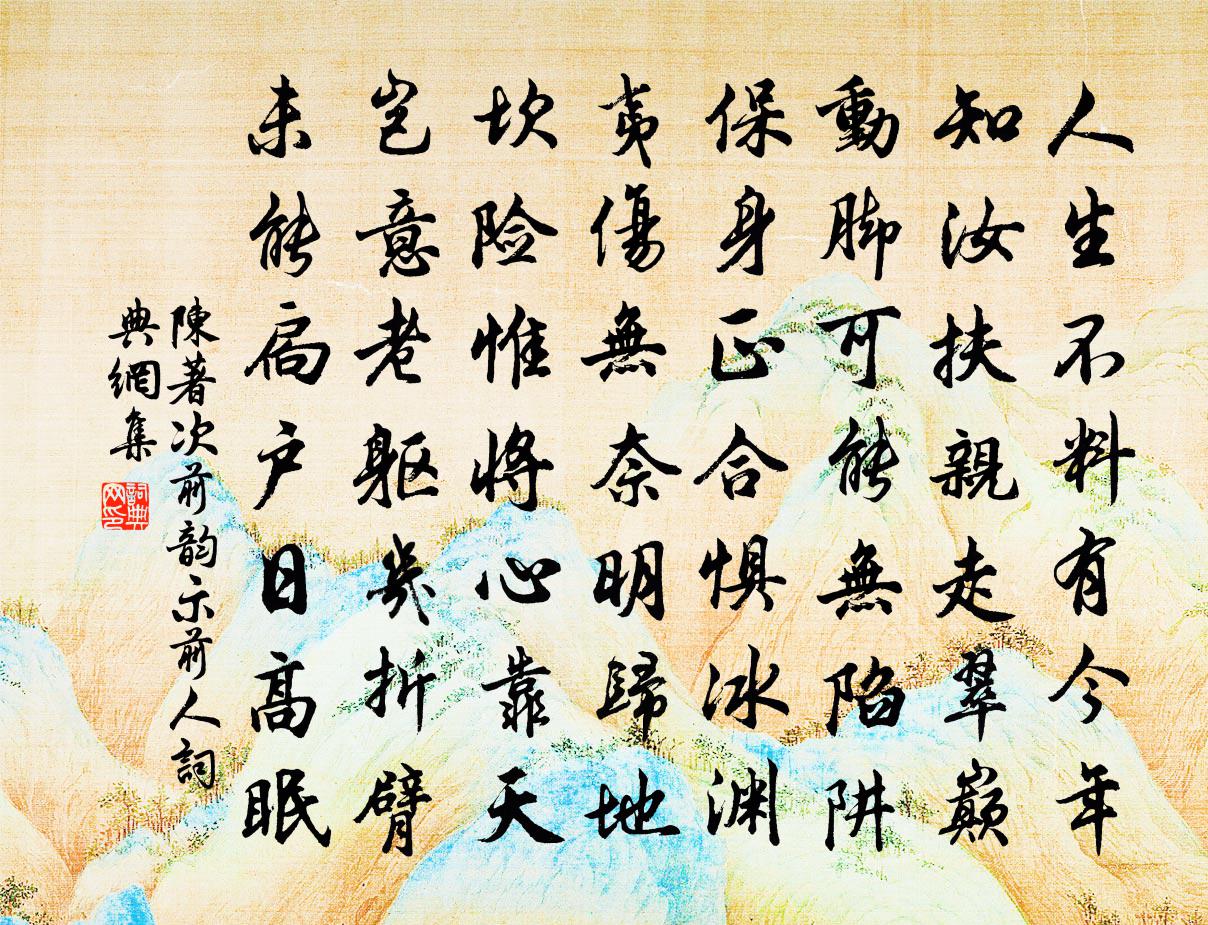 人生不料有今年
知汝扶親走翠巔
動脚可能無陷阱
保身正合惧冰渊
夷傷無奈明歸地
坎险惟将心靠天
岂意老躯幾折臂
未能扃户日高眠
陳著次前韵示前人詞
典網集
詞典
网印